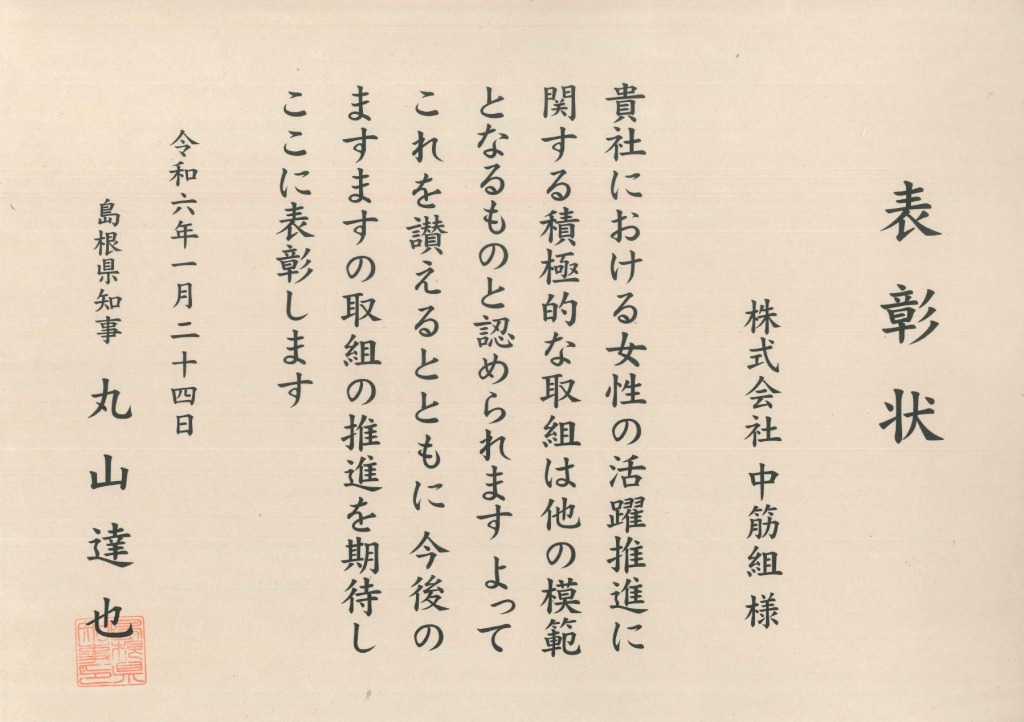 表彰状
株式会社 中筋組 様
貴社における女性の活躍推進に
関する積極的な取組は他の模範
となるものと認められます よって
これを讃えるとともに 今後の
ますますの取組の推進を期待し
ここに表彰します
令和六年一月二十四日
島根県知事 丸山達也
島根県知事之印